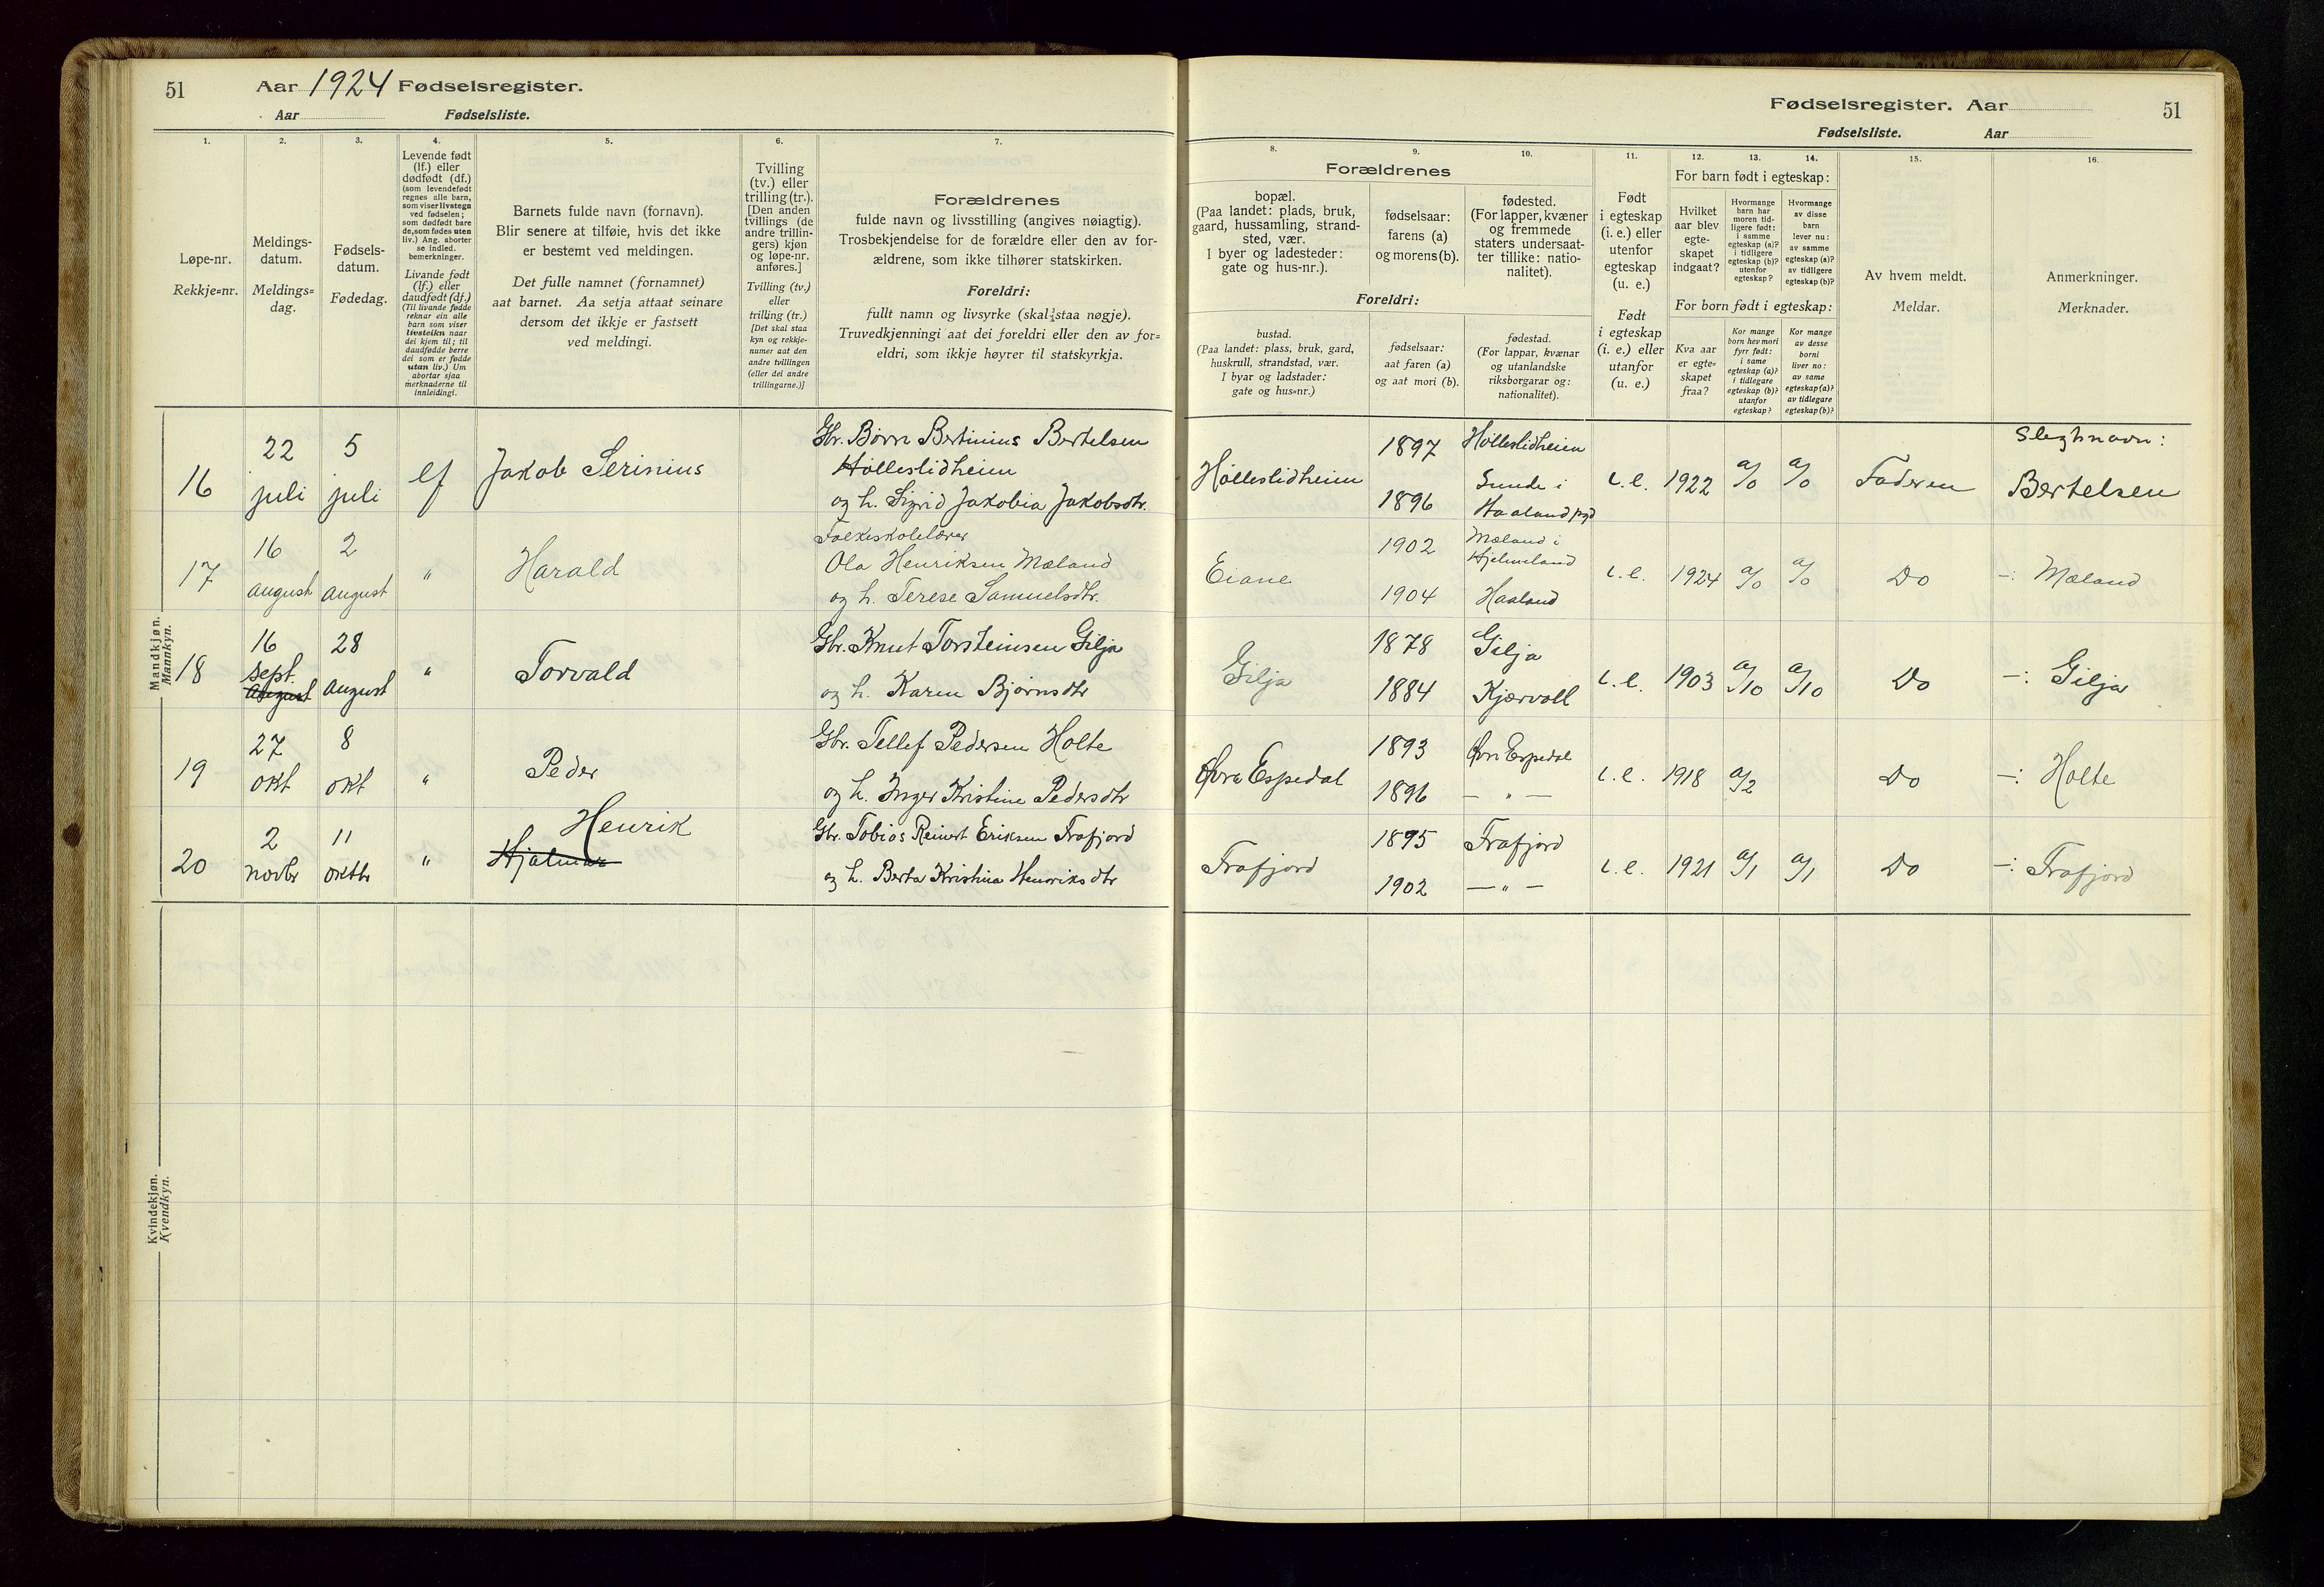 51 Aar 1924 Fødselsregister.
Aar Fødselsliste.
1. 2. 3. 4. 5. 6. 7.
Løpe-nr.
Rekkje=nr.
Meldings-
datum.
Meldings=
dag.
Fødsels-
datum.
Fødedag.
Levende født
(lf.) eller
dødfødt (df.)
(som levendefødt
regnes alle barn,
som viser livstegn
ved fødselen;
som dødfødt bare
de, som fødes uten
liv.) Ang. aborter
se indled.
bemerkninger.
Livande født
(lf.) eller
daudfødt (df.)
(Til livande fødde
reknar ein alle
barn som viser
livsteikn naar
dei kjem til; til
daudfødde berre
dei som er fødde
utan liv.) Um
abortar sjaa
merknaderne til
innleidingi.
Barnets fulde navn (fornavn).
Blir senere at tilføie, hvis det ikke
er bestemt ved meldingen.
Det fulle namnet (fornamnet)
aat barnet. Aa setja attaat seinare
dersom det ikkje er fastsett
ved meldingi.
Tvilling
(tv.) eller
trilling (tr.).
[Den anden
tvillings (de
andre trillin-
gers) kjøn
og løpe-nr.
anføres.]
Tvilling (tv.)
eller
trilling (tr.)
[Det skal staa
kyn og rekkje-
numer aat den
andre tvillingen
(eller dei andre
trillingarne.)]
Forældrenes
fulde navn og livsstilling (angives nøiagtig).
Trosbekjendelse for de forældre eller den av for-
ældrene, som ikke tilhører statskirken.
Foreldri:
fullt namn og livsyrke (skal staa nøgje).
Truvedkjenningi aat dei foreldri eller den av for=
eldri, som ikkje høyrer til statskyrkja.
Mandkjøn.
Mannkyn.
16 22 juli 5 juli lf Jakob Serinius
Gbr. Børn Bertinius Bertelsen
Hølleslidheim
og h. Sigrid Jakobia Jakobsdtr.
17 16 august 2 august " Harald
Folkeskolelærer
Ola Henriksen Mæland
og h. Terese Samuelsdtr.
18 16 sept. august 28 august " Torvald
Gbr. Knut Torsteinsen Gilja
og h. Karen Bjørnsdtr
19 27 okt 8 okt " Peder
Gbr. Tellef Pedersen Holte
og h. Inger Kristine Pedersdtr
20 2 novbr 11 oktbr " Henrik
Hjalmar
Gbr. Tobias Reinert Eriksen Frafjord
og h. Berta Kristina Henriksdtr
Kvindekjøn.
Kvendkyn.
Fødselsregister. Aar 51
Fødselsliste. Aar
8. 9. 10. 11. 12. 13. 14. 15. 16.
Forældrenes
bopæl.
(Paa landet: plads, bruk,
gaard, hussamling, strand-
sted, vær.
I byer og ladesteder:
gate og hus-nr.).
fødselsaar:
farens (a)
og morens (b).
fødested.
(For lapper, kvæner
og fremmede
staters undersaat-
ter tillike: natio-
nalitet).
Foreldri:
bustad.
(Paa landet: plass, bruk, gard,
huskrull, strandstad, vær.
I byar og ladstader:
gate og hus=nr.)
fødselsaar:
aat faren (a)
og aat mori (b).
fødestad.
(For lappar, kvænar
og utanlandske
riksborgarar og:
nationalitet).
Født
i egteskap
(i. e.) eller
utenfor
egteskap
(u. e.)
Født
i egteskap
(i. e.) eller
utanfor
(u. e.)
For barn født i egteskap:
Hvilket
aar blev
egte-
skapet
indgaat?
Hvormange
barn har
moren tid-
ligere født:
i samme
egteskap (a)?
i tidligere
egteskap (b)?
utenfor
egteskap?
Hvormange
av disse
barn
lever nu:
av samme
egteskap (a)?
av tidligere
egteskap (b)?
For born født i egteskap:
Kva aar
er egte-
skapet
fraa?
Kor mange
born hev mori
fyrr født:
i same
egteskap (a)?
i tidlegare
egteskap (b)?
utanfor
egteskap?
Kor mange
av desse
borni
liver no:
av same
egteskap (a)?
av tidlegare
egteskap (b)?
Av hvem meldt.
Meldar.
Anmerkninger.
Merknader.
Hølleslidheim 1897 Hølleslidheim
1896 Sunde i
Haaland pgd
i. e. 1922 a/0 a/0 Faderen Slegtnavn:
Bertelsen
Eiane 1902 Mæland i
Hjelmeland
1904 Haaland
i. e. 1924 a/0 a/0 Do —: Mæland
Gilja 1878 Gilja
1884 Kjærvoll
i. e. 1903 a/10 a/10 Do —: Gilja
Øvre Espedal 1893 Øvre Espedal
1896 — " —
i. e. 1918 a/2 Do —: Holte
Frafjord 1895 Frafjord
1902 — " —
i. e. 1921 a/1 a/1 Do —: Frafjord